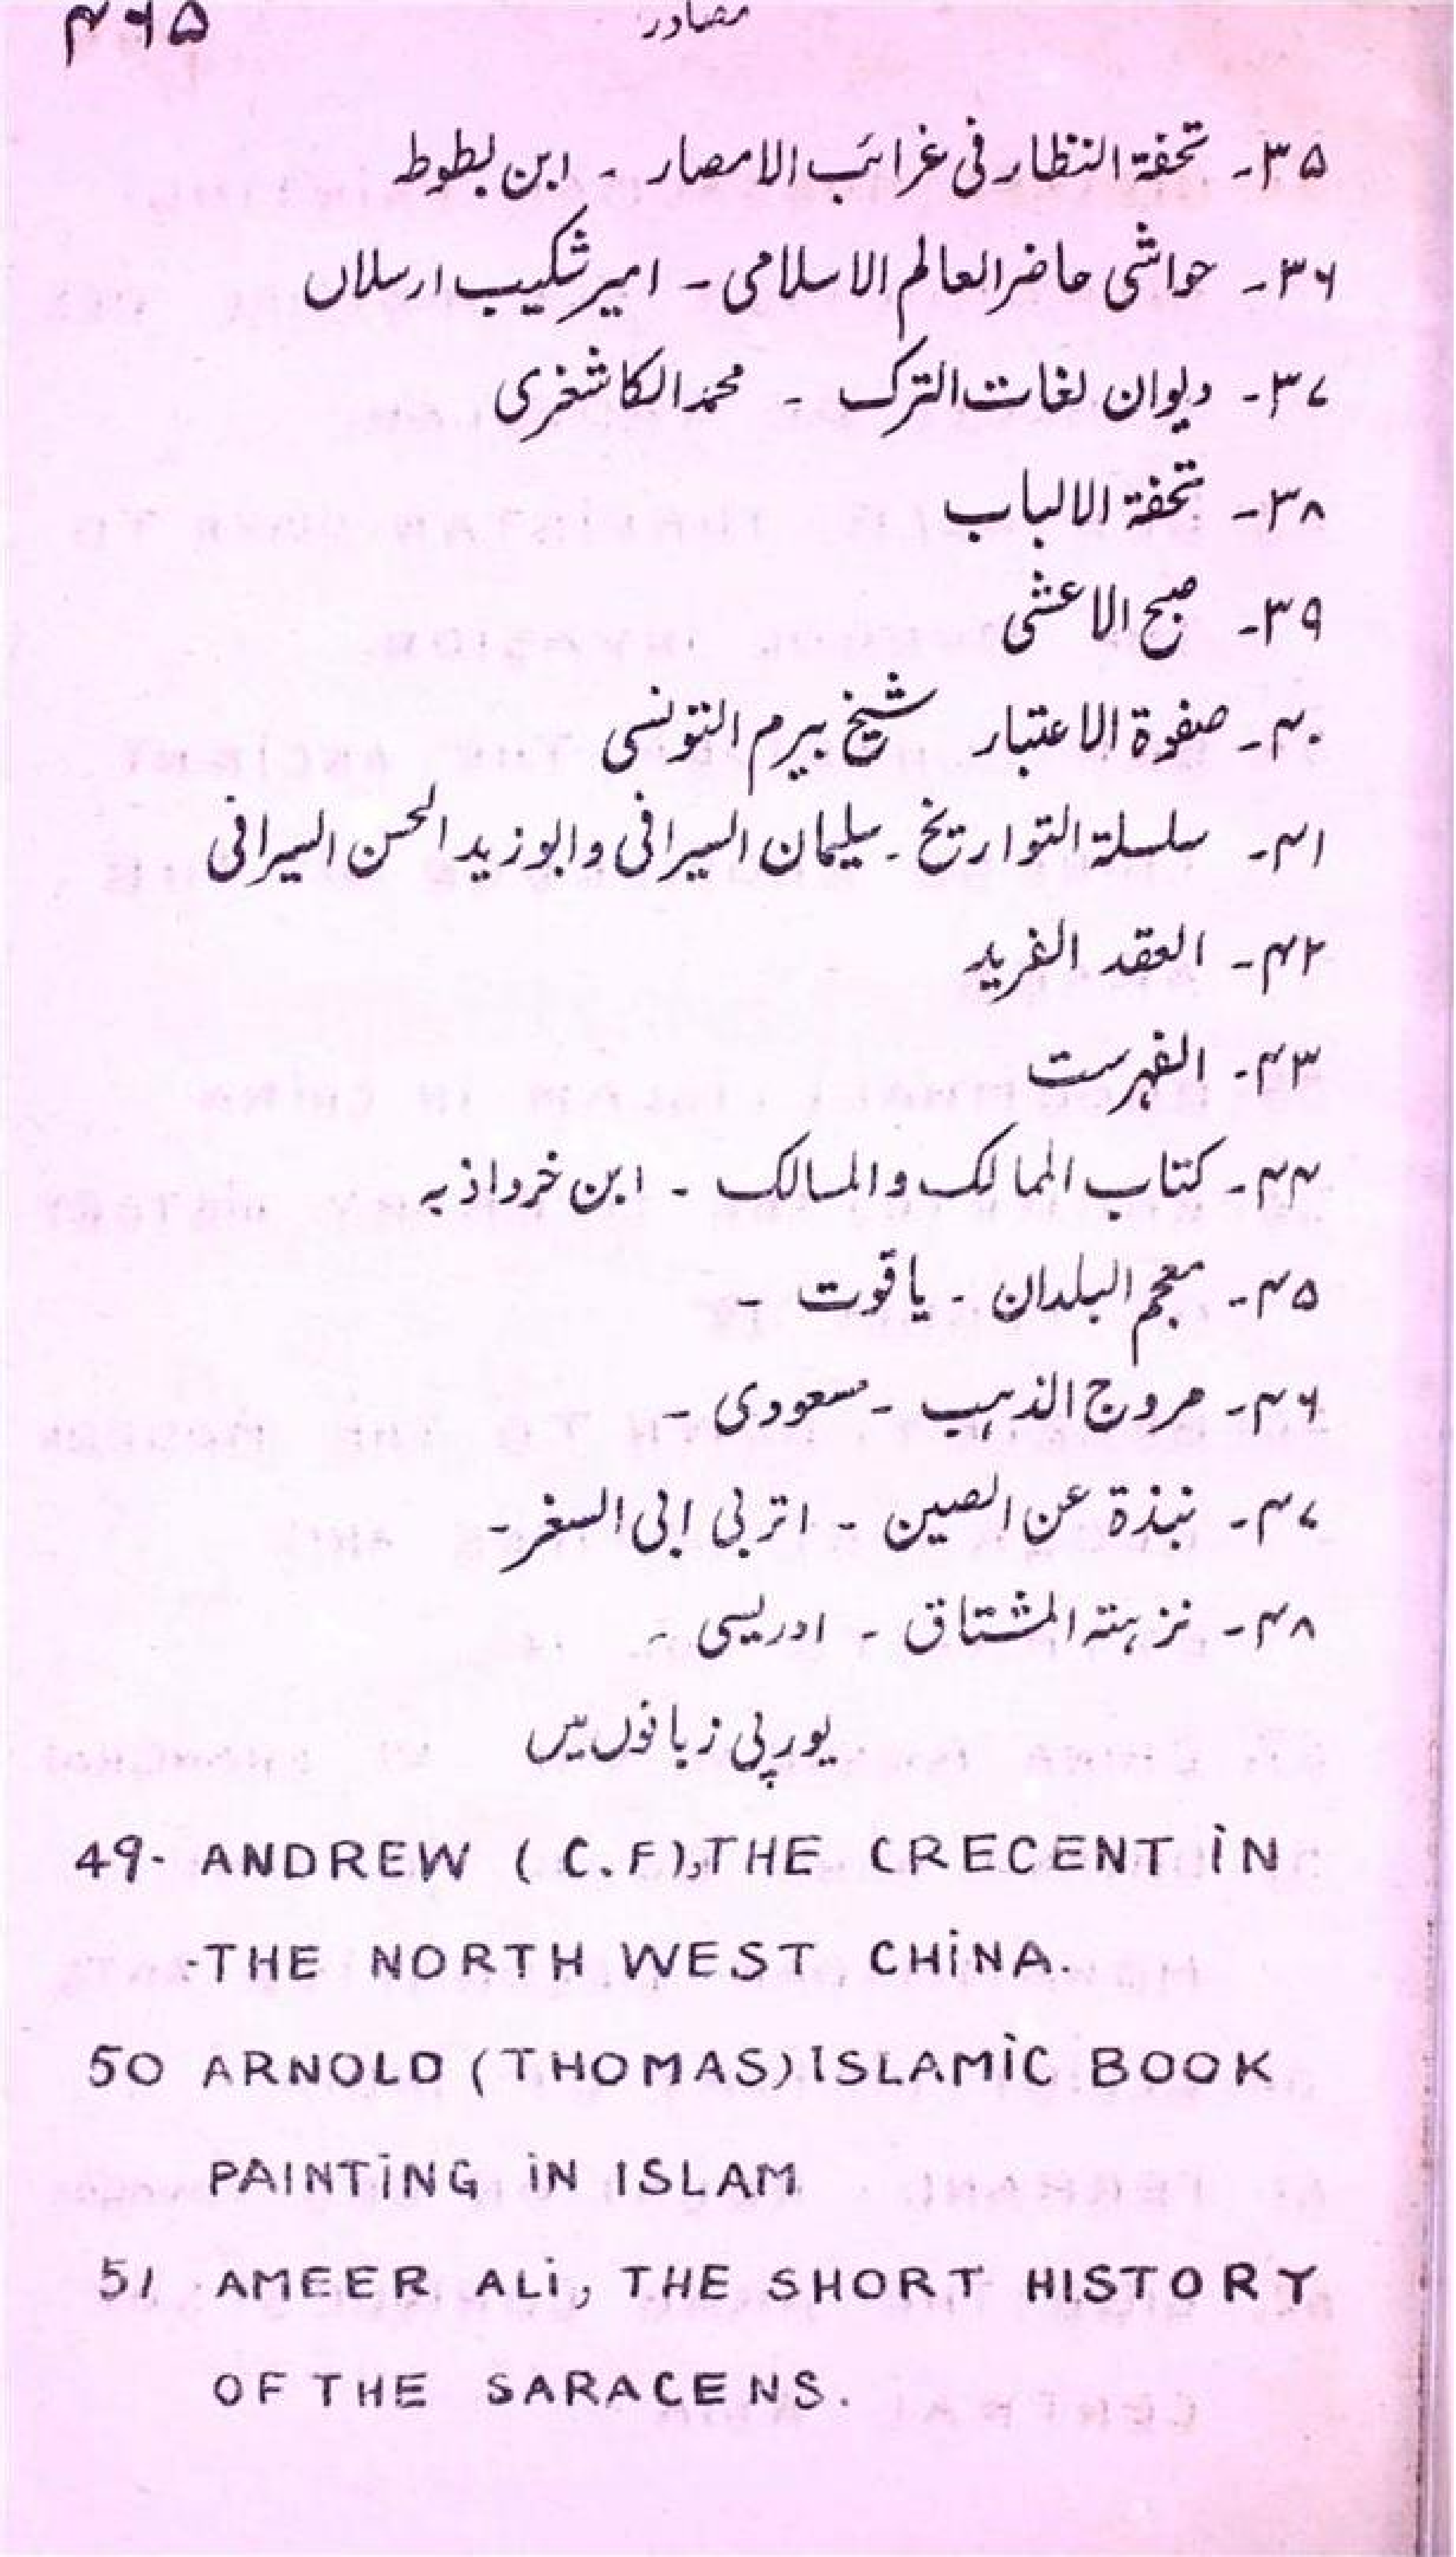 ۴۶۵
مصادر
۳۵۔ تحفۃ النظار فی غرائب الامصار ۔ ابن بطوط
۳۶۔ حواشی حاضر العالم الاسلامی ۔ امیر شکیب ارسلاں
۳۷۔ دیوان لغات الترک ۔ محمد الکاشغری
۳۸۔ تحفۃ الالباب
۳۹۔ صبح الاعشی
۴۰۔ صفوۃ الاعتبار شیخ بیرم التونسی
۴۱۔ سلسلۃ التواریخ ۔ سلیمان السیرافی و ابو زید الحسن السیرافی
۴۲۔ العقد الفرید
۴۳۔ الفہرست
۴۴۔ کتاب الممالک والمسالک ۔ ابن خرداذبہ
۴۵۔ معجم البلدان ۔ یاقوت ۔
۴۶۔ مروج الذہب ۔ مسعودی ۔
۴۷۔ نبذۃ عن الصین ۔ اتربی ابی السغر ۔
۴۸۔ نزہتہ المشتاق ۔ ادریسی ۔
یورپی زبانوں میں
49- ANDREW (C.F), THE CRECENT iN
-THE NORTH WEST CHiNA.
50 ARNOLD (THOMAS) ISLAMiC BOOK
PAINTiNG iN ISLAM
51 AMEER ALi, THE SHORT HISTORY
OF THE SARACENS.